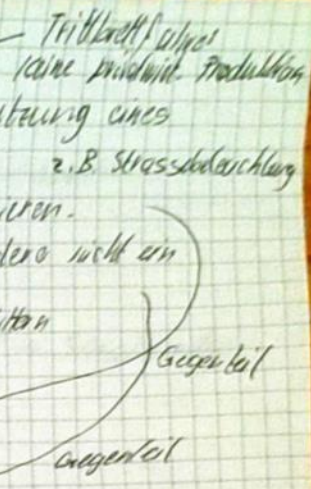 – Trittbrettfahrer
keine private Produktion
tzung eines
z.B. Strassenbeleuchtung
ieren.
dere nicht ein
ttern
Gegenteil
Gegenteil